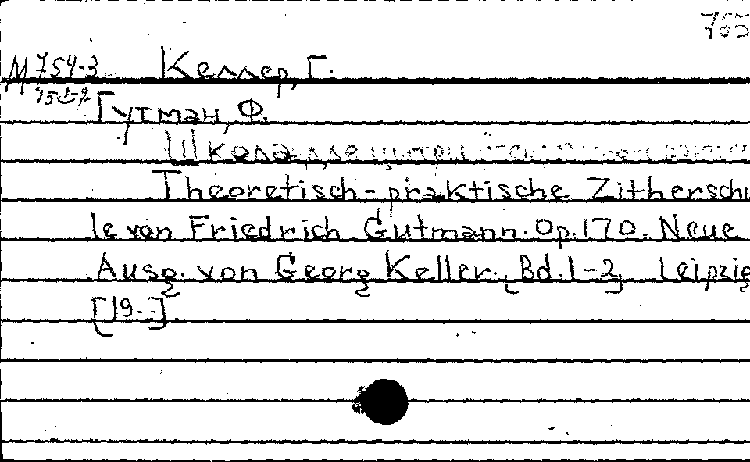 765
М 754-3 Келлер, Г.
Гутман, Ф.
Школа для цитры
Theoretisch-praktische Zitherschu
le von Friedrich Gutmann. Op. 170. Neue
Ausg. von Georg Keller. Bd. 1-2 Leipzig
[19..]